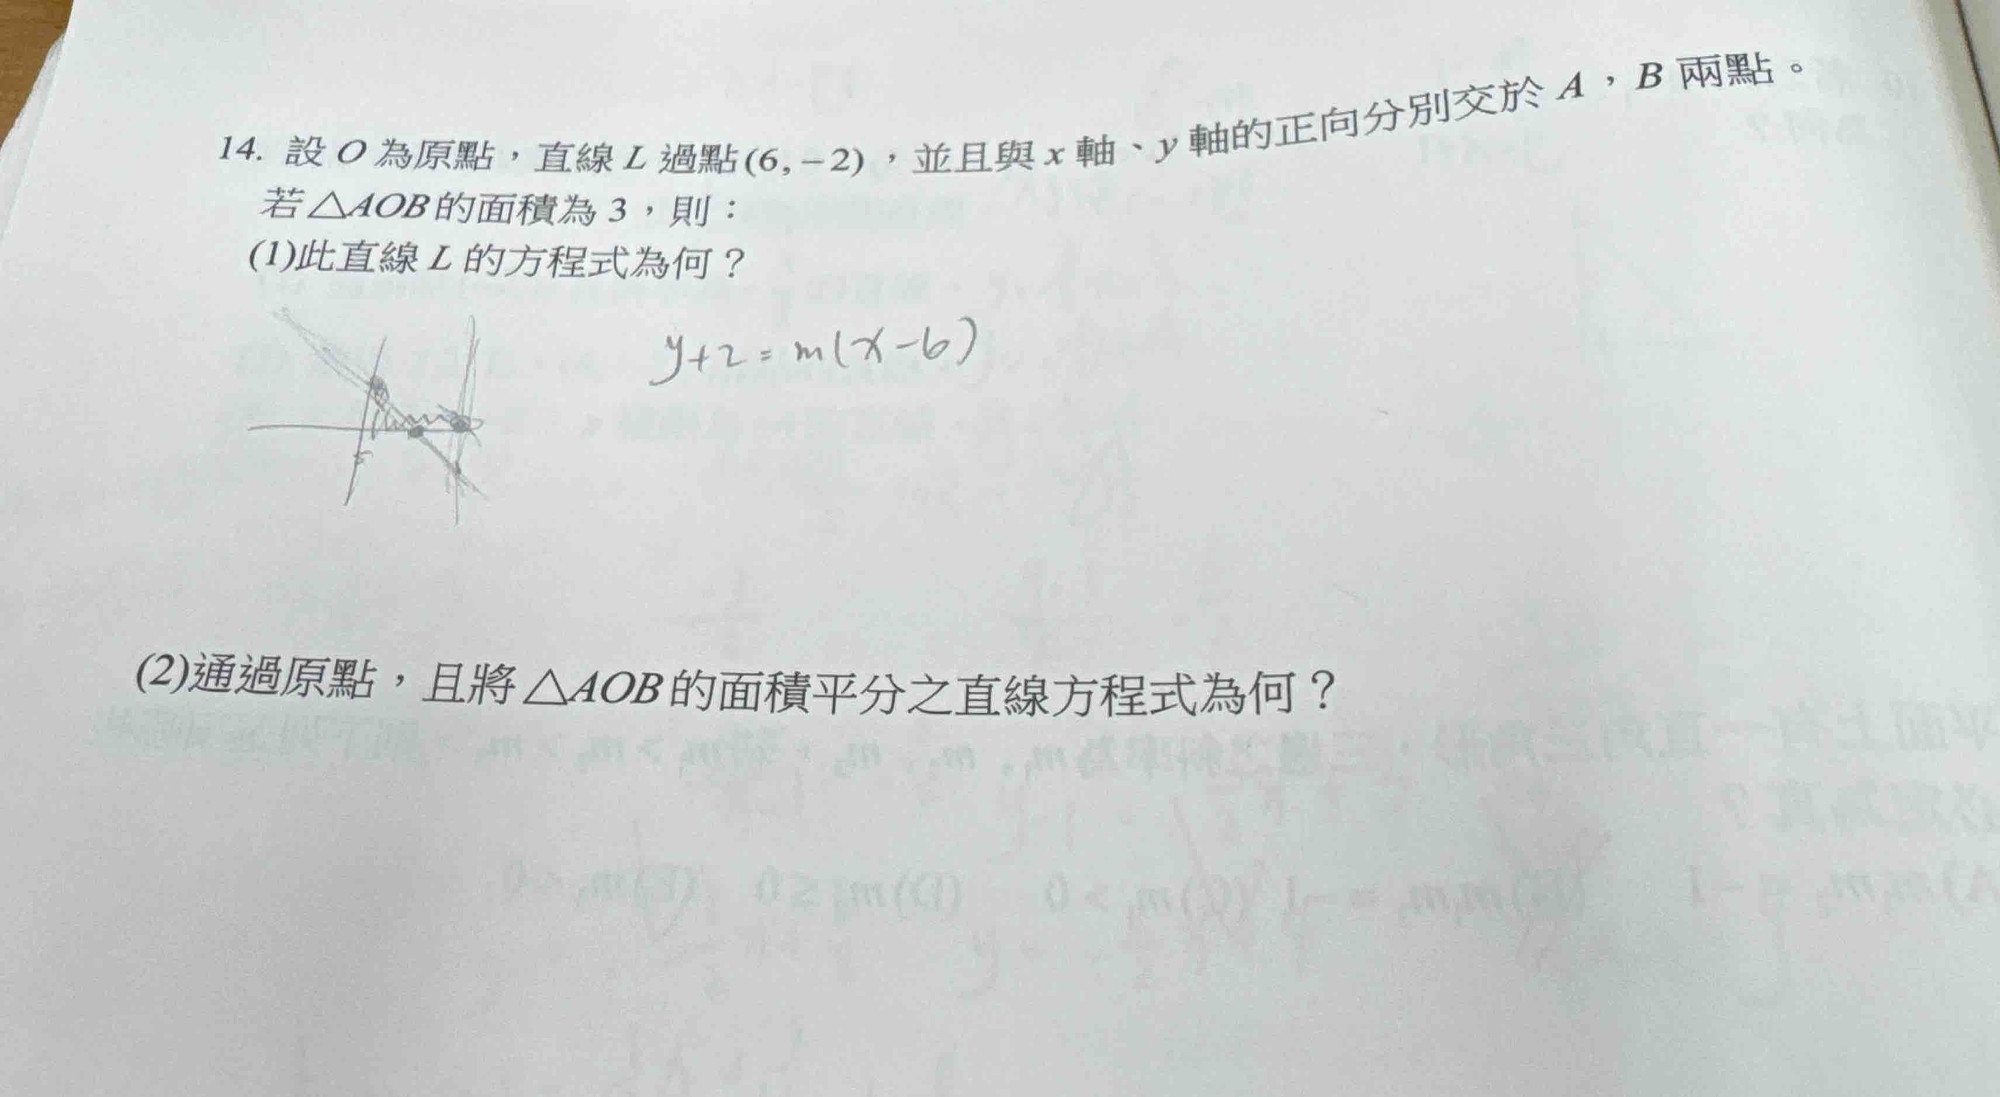 14. 設 O 為原點，直線 L 過點(6, −2)，並且與 x 軸、y 軸的正向分別交於 A，B 兩點。
若△AOB的面積為 3，則：
(1)此直線 L 的方程式為何？
y+2=m(x-6)
(2)通過原點，且將△AOB的面積平分之直線方程式為何？